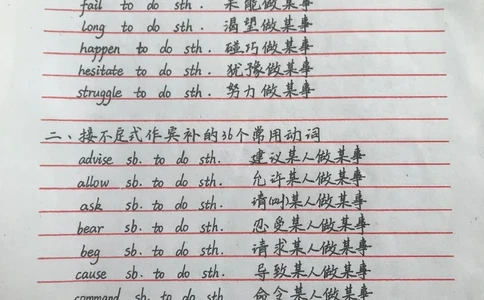 fail to do sth. 未能做某事
long to do sth. 渴望做某事
happen to do sth. 碰巧做某事
hesitate to do sth. 犹豫做某事
struggle to do sth. 努力做某事
二、接不定式作宾补的36个常用动词
advise sb. to do sth. 建议某人做某事
allow sb. to do sth. 允许某人做某事
ask sb. to do sth. 请(叫)某人做某事
bear sb. to do sth. 忍受某人做某事
beg sb. to do sth. 请求某人做某事
cause sb. to do sth. 导致某人做某事
command sb. to do sth. 命令某人做某事